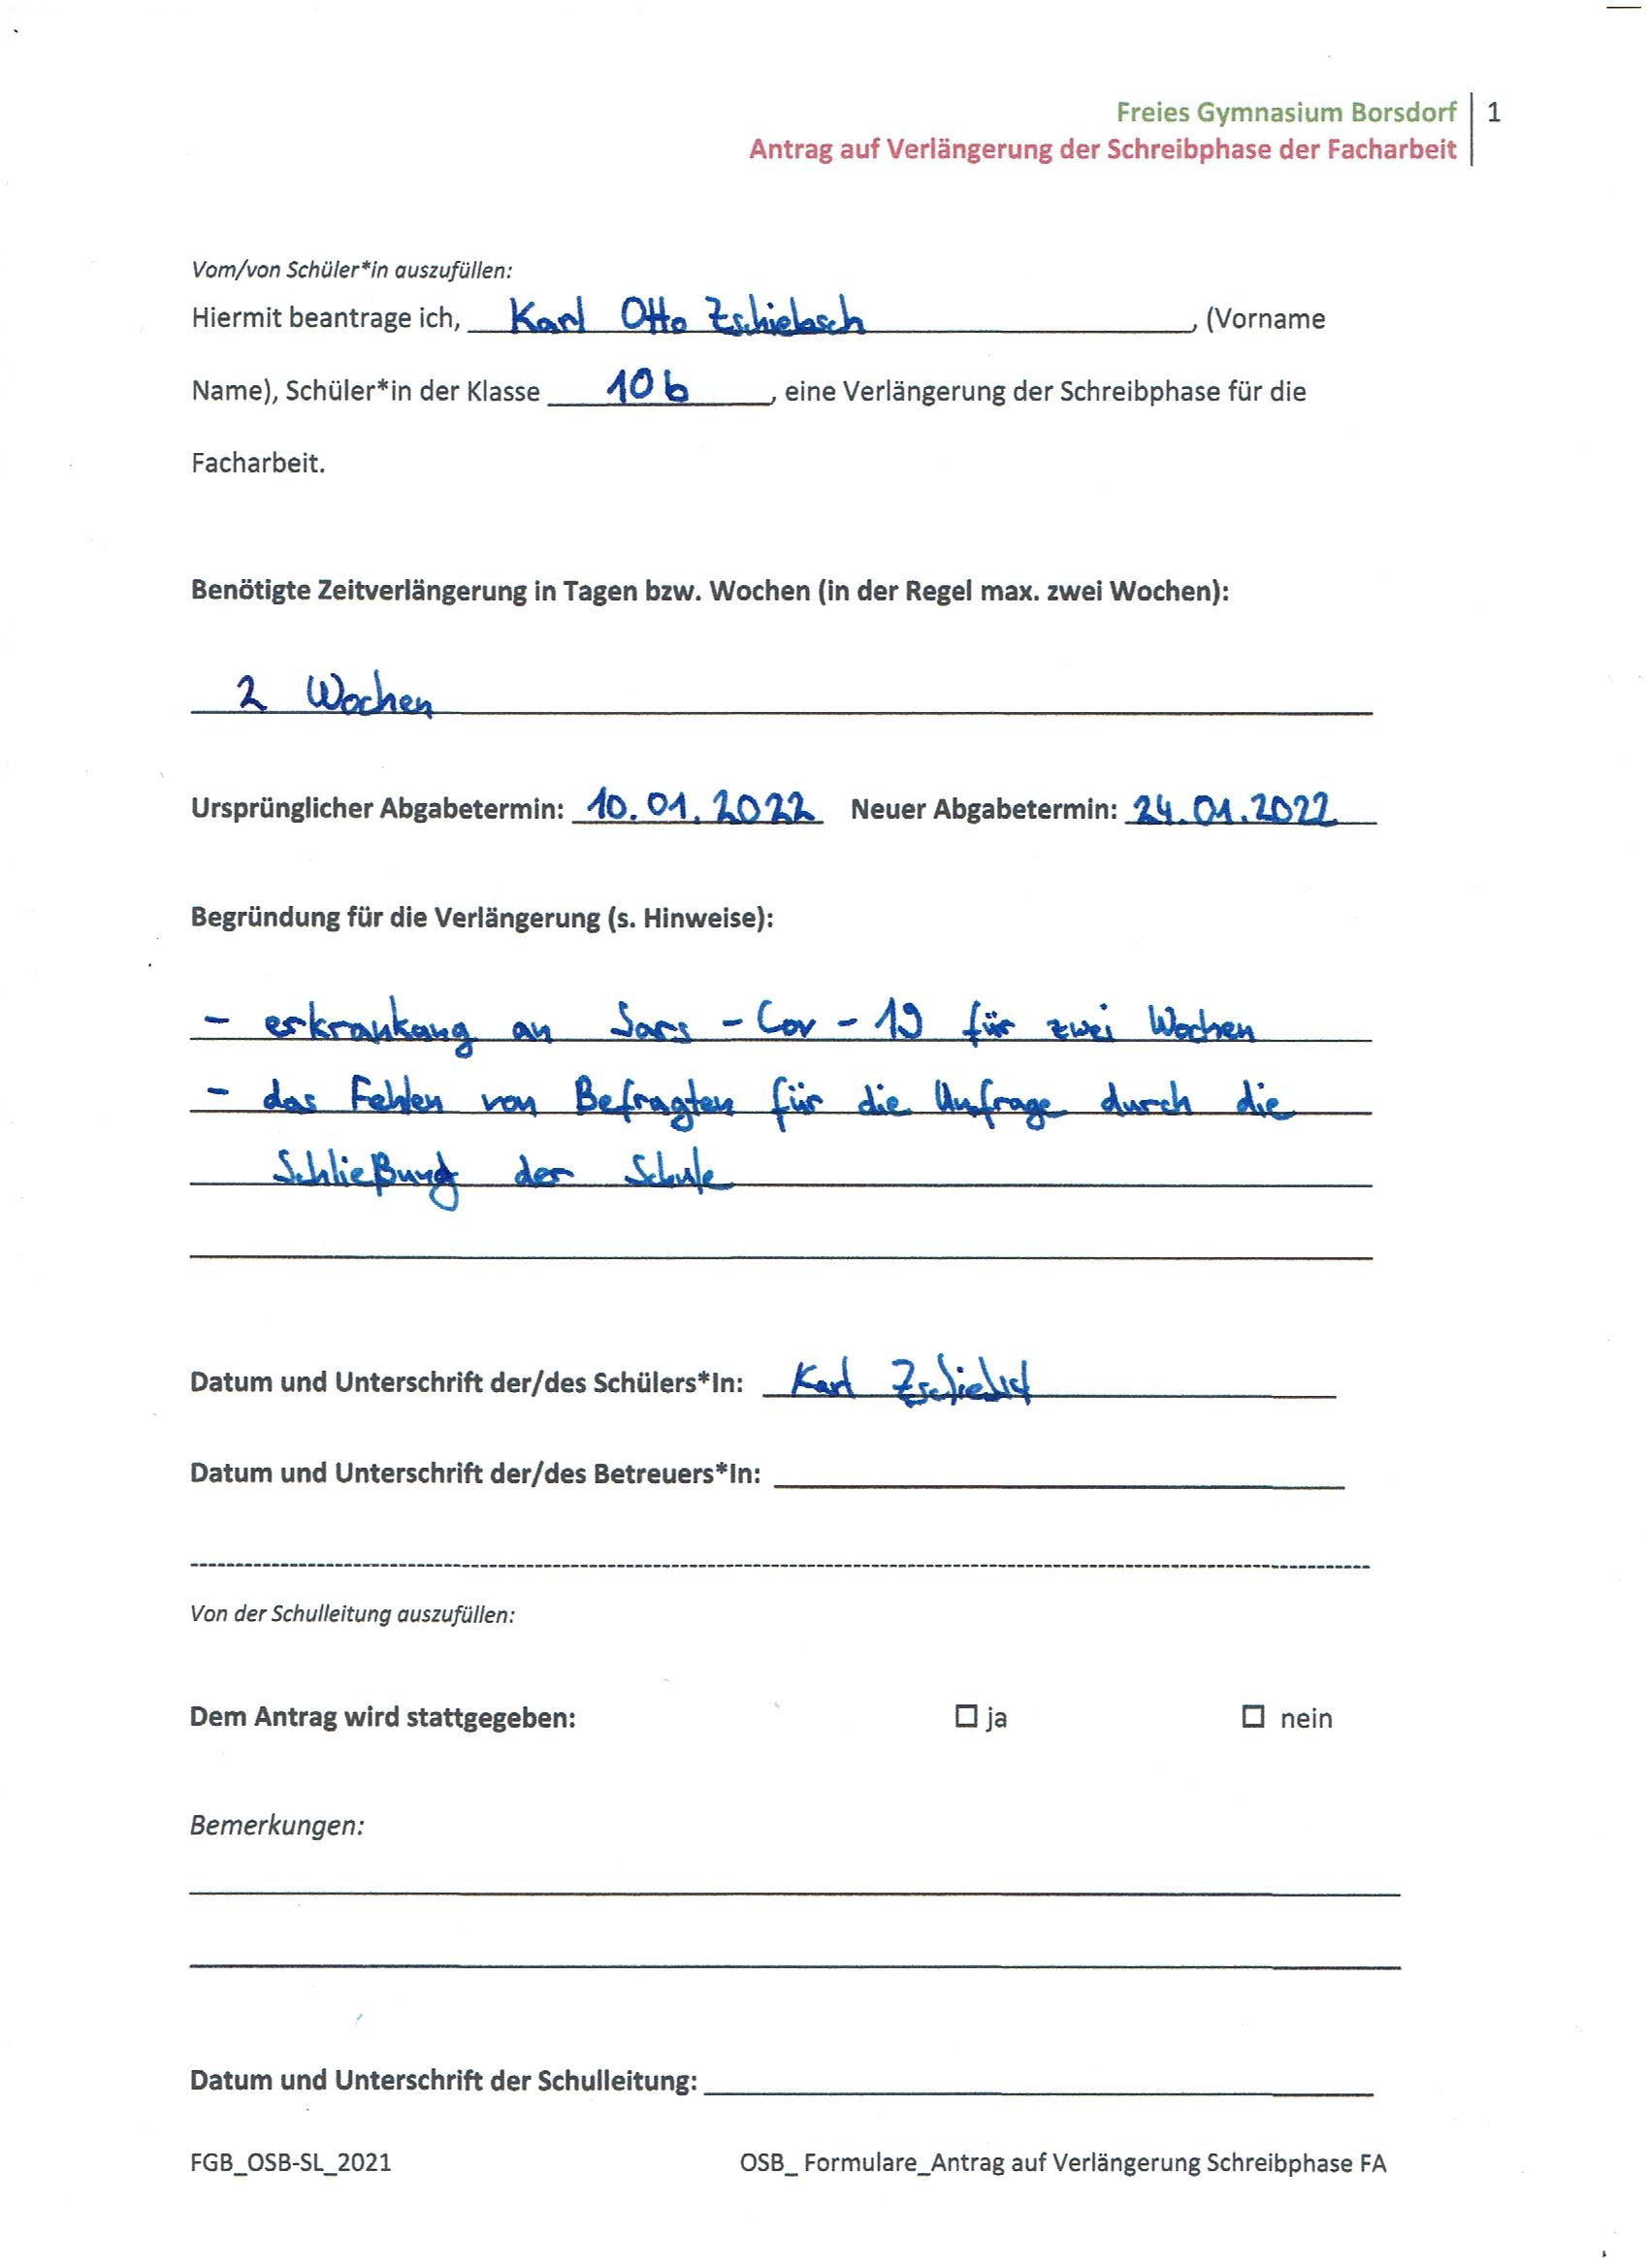 Freies Gymnasium Borsdorf 1
Antrag auf Verlängerung der Schreibphase der Facharbeit
Vom/von Schüler*in auszufüllen:
Hiermit beantrage ich, Karl Otto Zschiebsch, (Vorname
Name), Schüler*in der Klasse 10b, eine Verlängerung der Schreibphase für die
Facharbeit.
Benötigte Zeitverlängerung in Tagen bzw. Wochen (in der Regel max. zwei Wochen):
2 Wochen
Ursprünglicher Abgabetermin: 10.01.2022 Neuer Abgabetermin: 24.01.2022
Begründung für die Verlängerung (s. Hinweise):
- erkrankung an Sars-Cov-19 für zwei Wochen
- das Fehlen von Befragten für die Umfrage durch die
Schließung der Schule
Datum und Unterschrift der/des Schülers*In: Karl
Datum und Unterschrift der/des Betreuers*In:
Von der Schulleitung auszufüllen:
Dem Antrag wird stattgegeben: ja nein
Bemerkungen:
Datum und Unterschrift der Schulleitung:
FGB_OSB-SL_2021 OSB_ Formulare_Antrag auf Verlängerung Schreibphase FA